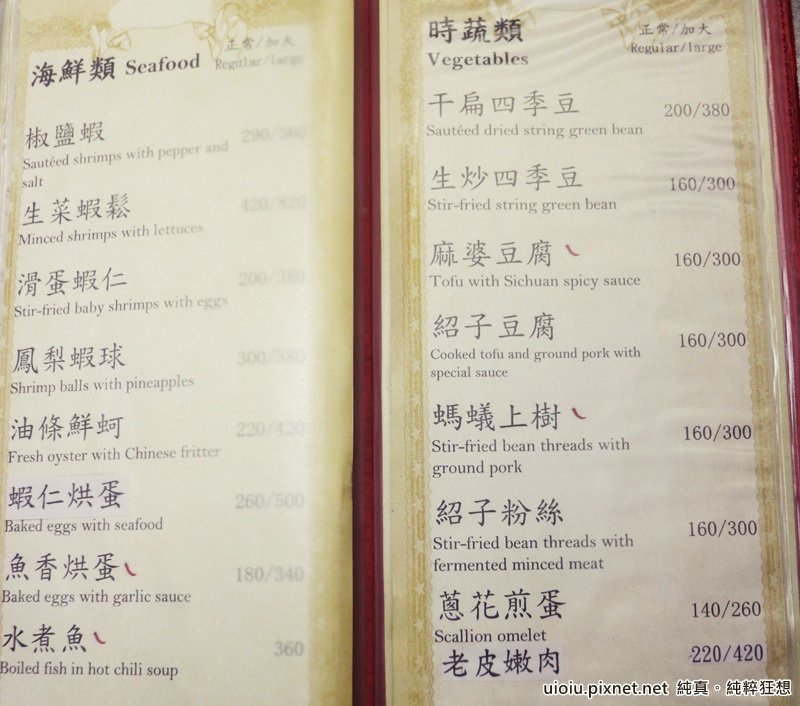 海鮮類 Seafood
正常/加大
Regular/large
椒鹽蝦 290/560
Sautéed shrimps with pepper and
salt
生菜蝦鬆 420/820
Minced shrimps with lettuces
滑蛋蝦仁 200/380
Stir-fried baby shrimps with eggs
鳳梨蝦球 300/580
Shrimp balls with pineapples
油條鮮蚵 220/420
Fresh oyster with Chinese fritter
蝦仁烘蛋 260/500
Baked eggs with seafood
魚香烘蛋 180/340
Baked eggs with garlic sauce
水煮魚 360
Boiled fish in hot chili soup
時蔬類
Vegetables
正常/加大
Regular/large
干扁四季豆 200/380
Sautéed dried string green bean
生炒四季豆 160/300
Stir-fried string green bean
麻婆豆腐 160/300
Tofu with Sichuan spicy sauce
紹子豆腐 160/300
Cooked tofu and ground pork with
special sauce
螞蟻上樹 160/300
Stir-fried bean threads with
ground pork
紹子粉絲 160/300
Stir-fried bean threads with
fermented minced meat
蔥花煎蛋 140/260
Scallion omelet
老皮嫩肉 220/420
uioiu.pixnet.net 純真。純粹狂想